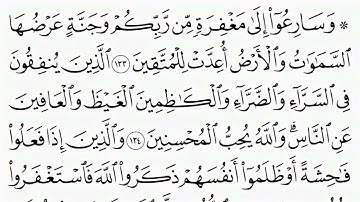 * وَسَارِعُوٓا۟ إِلَىٰ مَغْفِرَةٍ مِّن رَّبِّكُمْ وَجَنَّةٍ عَرْضُهَا
ٱلسَّمَٰوَٰتُ وَٱلْأَرْضُ أُعِدَّتْ لِلْمُتَّقِينَ ١٣٣ ٱلَّذِينَ يُنفِقُونَ
فِى ٱلسَّرَّآءِ وَٱلضَّرَّآءِ وَٱلْكَٰظِمِينَ ٱلْغَيْظَ وَٱلْعَافِينَ
عَنِ ٱلنَّاسِۗ وَٱللَّهُ يُحِبُّ ٱلْمُحْسِنِينَ ١٣٤ وَٱلَّذِينَ إِذَا فَعَلُوا۟
فَٰحِشَةً أَوْ ظَلَمُوٓا۟ أَنفُسَهُمْ ذَكَرُوا۟ ٱللَّهَ فَٱسْتَغْفَرُوا۟